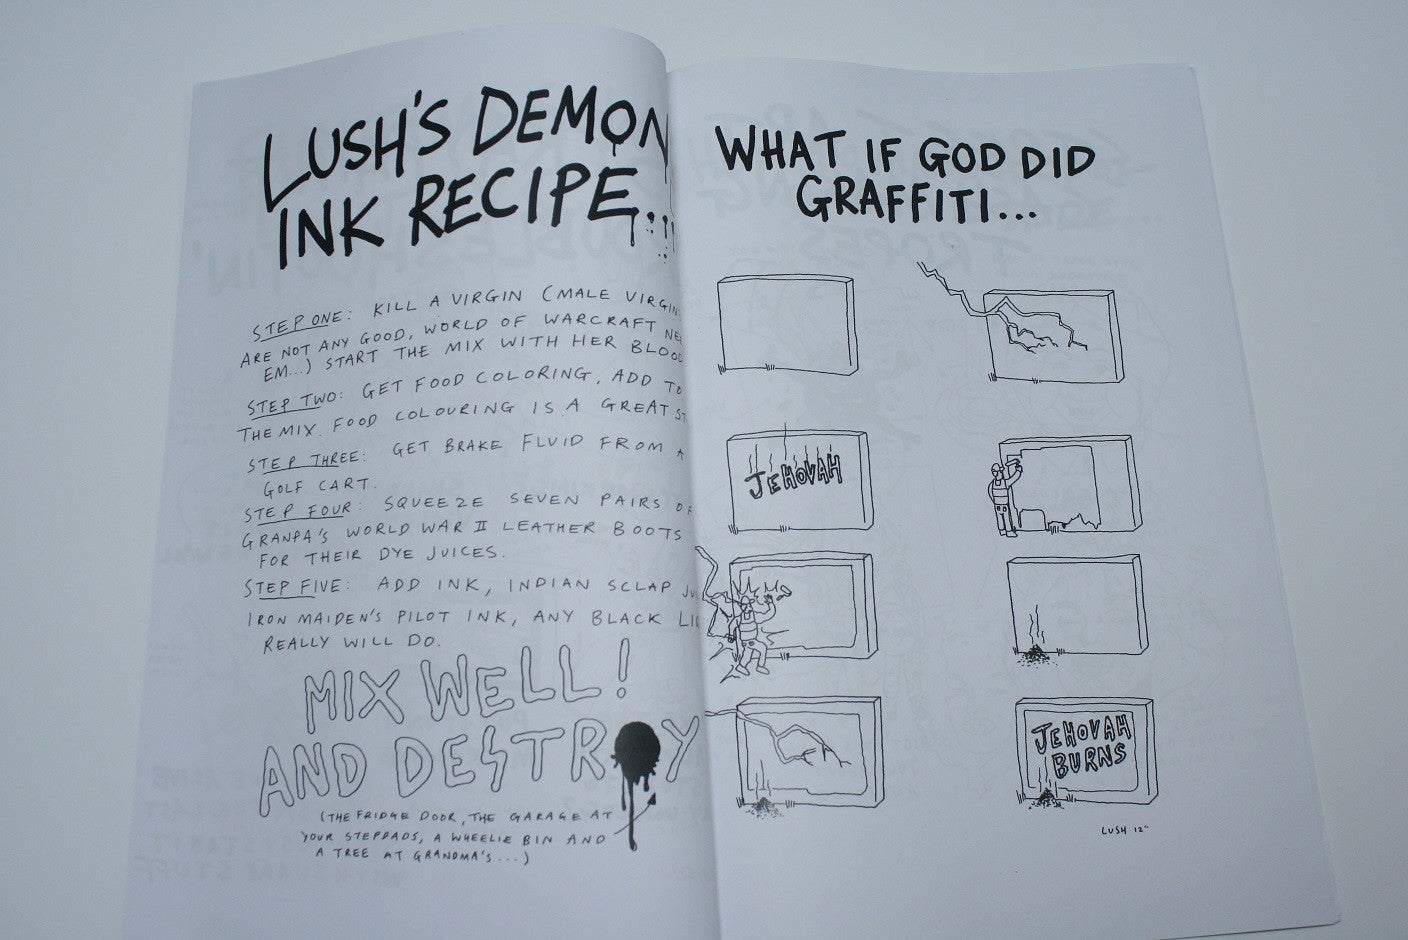 LUSH'S DEMON
INK RECIPE...
STEP ONE: KILL A VIRGIN (MALE VIRGINS
ARE NOT ANY GOOD, WORLD OF WARCRAFT
EM...) START THE MIX WITH HER BLOOD
STEP TWO: GET FOOD COLORING, ADD TO
THE MIX. FOOD COLOURING IS A GREAT
STEP THREE: GET BRAKE FLUID FROM A
GOLF CART.
STEP FOUR: SQUEEZE SEVEN PAIRS OF
GRANPA'S WORLD WAR II LEATHER BOOTS
FOR THEIR DYE JUICES.
STEP FIVE: ADD INK, INDIAN SCLAP
IRON MAIDEN'S PILOT INK, ANY BLACK
REALLY WILL DO.
MIX WELL!
AND DESTROY
(THE FRIDGE DOOR, THE GARAGE AT
YOUR STEPDADS, A WHEELIE BIN AND
A TREE AT GRANDMA'S...)
WHAT IF GOD DID
GRAFFITI...
JEHOVAH
JEHOVAH
BURNS
LUSH 12"